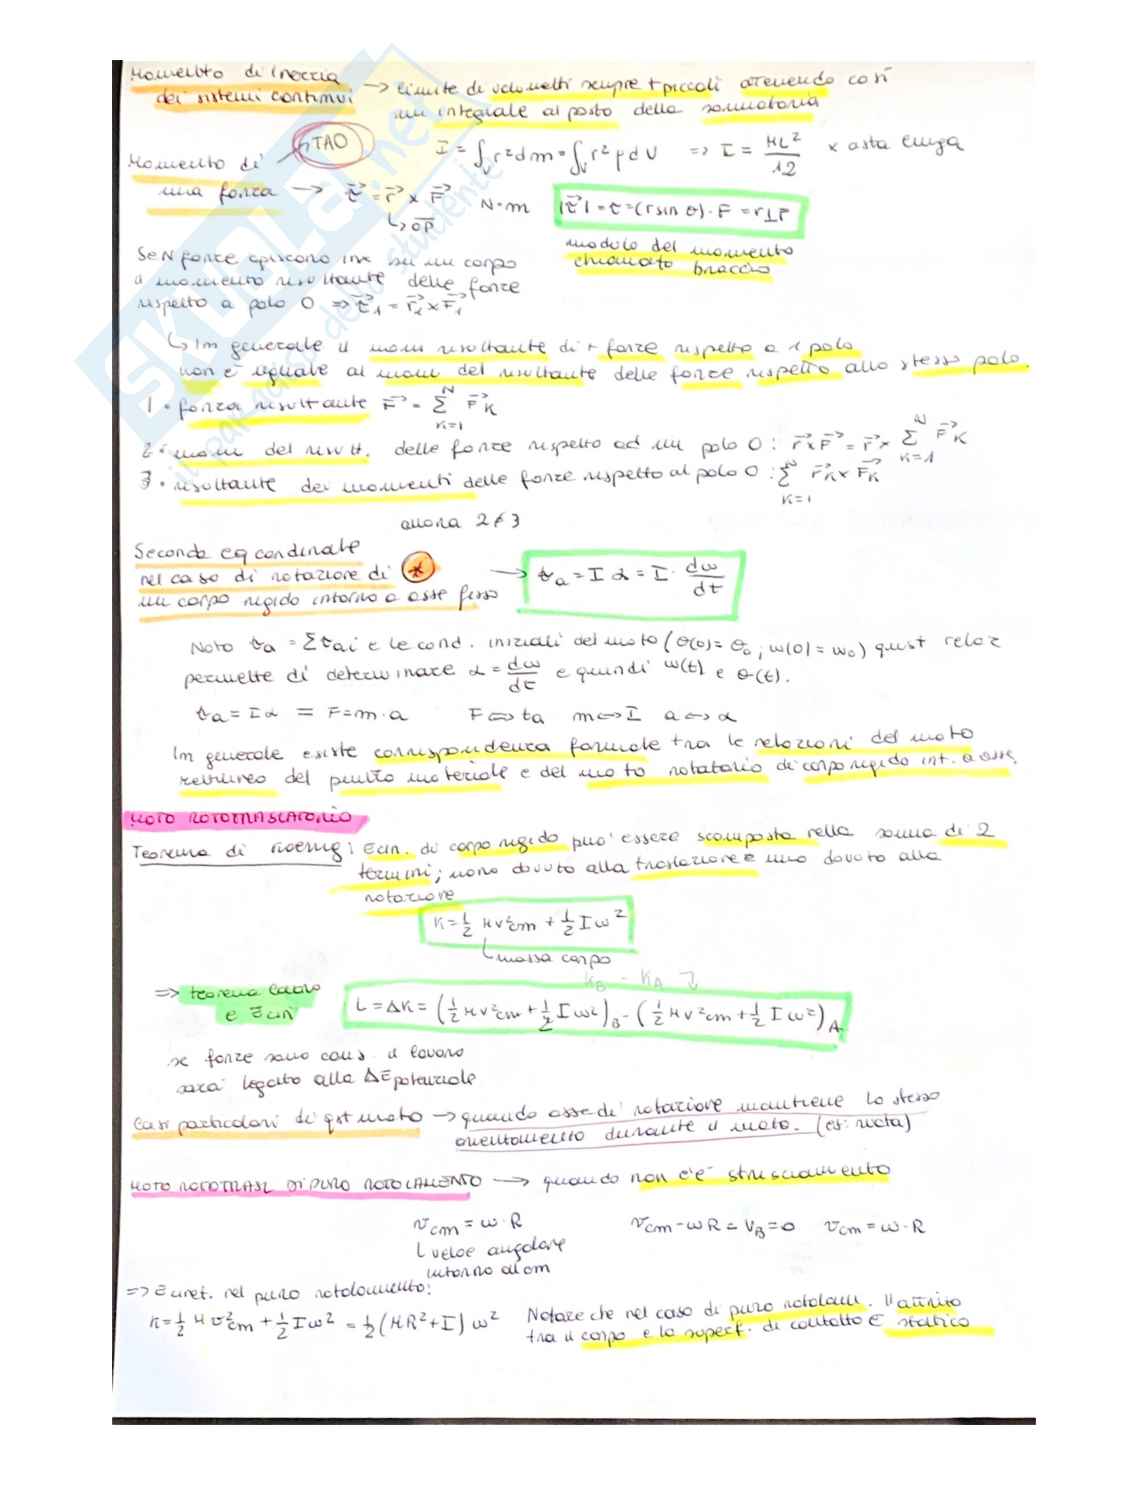 Momento di inerzia → limite di volumetti sempre + piccoli ottenendo così
dei sistemi continui un integrale al posto della sommatoria
TAO
I = ∫v r² dm = ∫v r² ρ dV ⇒ I = ML²/12 x asta lunga
Momento di
una forza → τ⃗ = r⃗ x F⃗ N·m |τ⃗| = τ = (r sin θ)·F = r⊥F
↳ OP
modulo del momento
chiamato braccio
Se N forze agiscono inx su un corpo
il momento risultante delle forze
rispetto a polo O ⇒ τ⃗₁ = r⃗₁ x F⃗₁
↳ In generale il mom risultante di + forze rispetto a 1 polo
non è uguale al mom del risultante delle forze rispetto allo stesso polo.
1 • forza risultante F⃗ = Σ F⃗K N K=1
2 • mom del risult. delle forze rispetto ad un polo O : r⃗ x F⃗ = r⃗ x Σ F⃗K N K=1
3 • risultante dei momenti delle forze rispetto al polo O : Σ r⃗K x F⃗K N K=1
allora 2 ≠ 3
Seconda eq cardinale
nel caso di rotazione di *
un corpo rigido intorno a asse fisso → τa = I α = I · dω/dt
Noto τa = Στai e le cond. iniziali del moto (θ(0) = θ₀ ; ω(0) = ω₀) quest relaz
permette di determinare α = dω/dt e quindi ω(t) e θ(t).
τa = Iα = F = m·a F ⇔ τa m ⇔ I a ⇔ α
In generale esiste corrispondenza formale tra le relazioni del moto
rettilineo del punto materiale e del moto rotatorio di corpo rigido int. a asse.
MOTO ROTOTRASLATORIO
Teorema di Koenig : Ecin. di corpo rigido può essere scomposta nella somma di 2
termini; uno dovuto alla traslazione e uno dovuto alla
rotazione
K = ½ Mv²cm + ½ I ω²
↳ massa corpo
KB - KA ↴
⇒ teorema lavoro
e Ecin L = ΔK = (½ Mv²cm + ½ I ω²)B - (½ Mv²cm + ½ I ω²)A
se forze sono cons. il lavoro
sarà legato alla ΔEpotenziale
Casi particolari di qst moto → quando asse di rotazione mantiene lo stesso
orientamento durante il moto. (es: ruota)
MOTO ROTOTRASL DI PURO ROTOLAMENTO → quando non c'è strisciamento
vcm = ω·R vcm - ωR = VB = 0 vcm = ω·R
↳ veloc angolare
intorno al cm
⇒ E cinet. nel puro rotolamento:
K = ½ M v²cm + ½ Iω² = ½ (MR² + I) ω² Notare che nel caso di puro rotolam. l'attrito
tra il corpo e la superf. di contatto è statico
SKUOLA.net
il paradiso dello studente